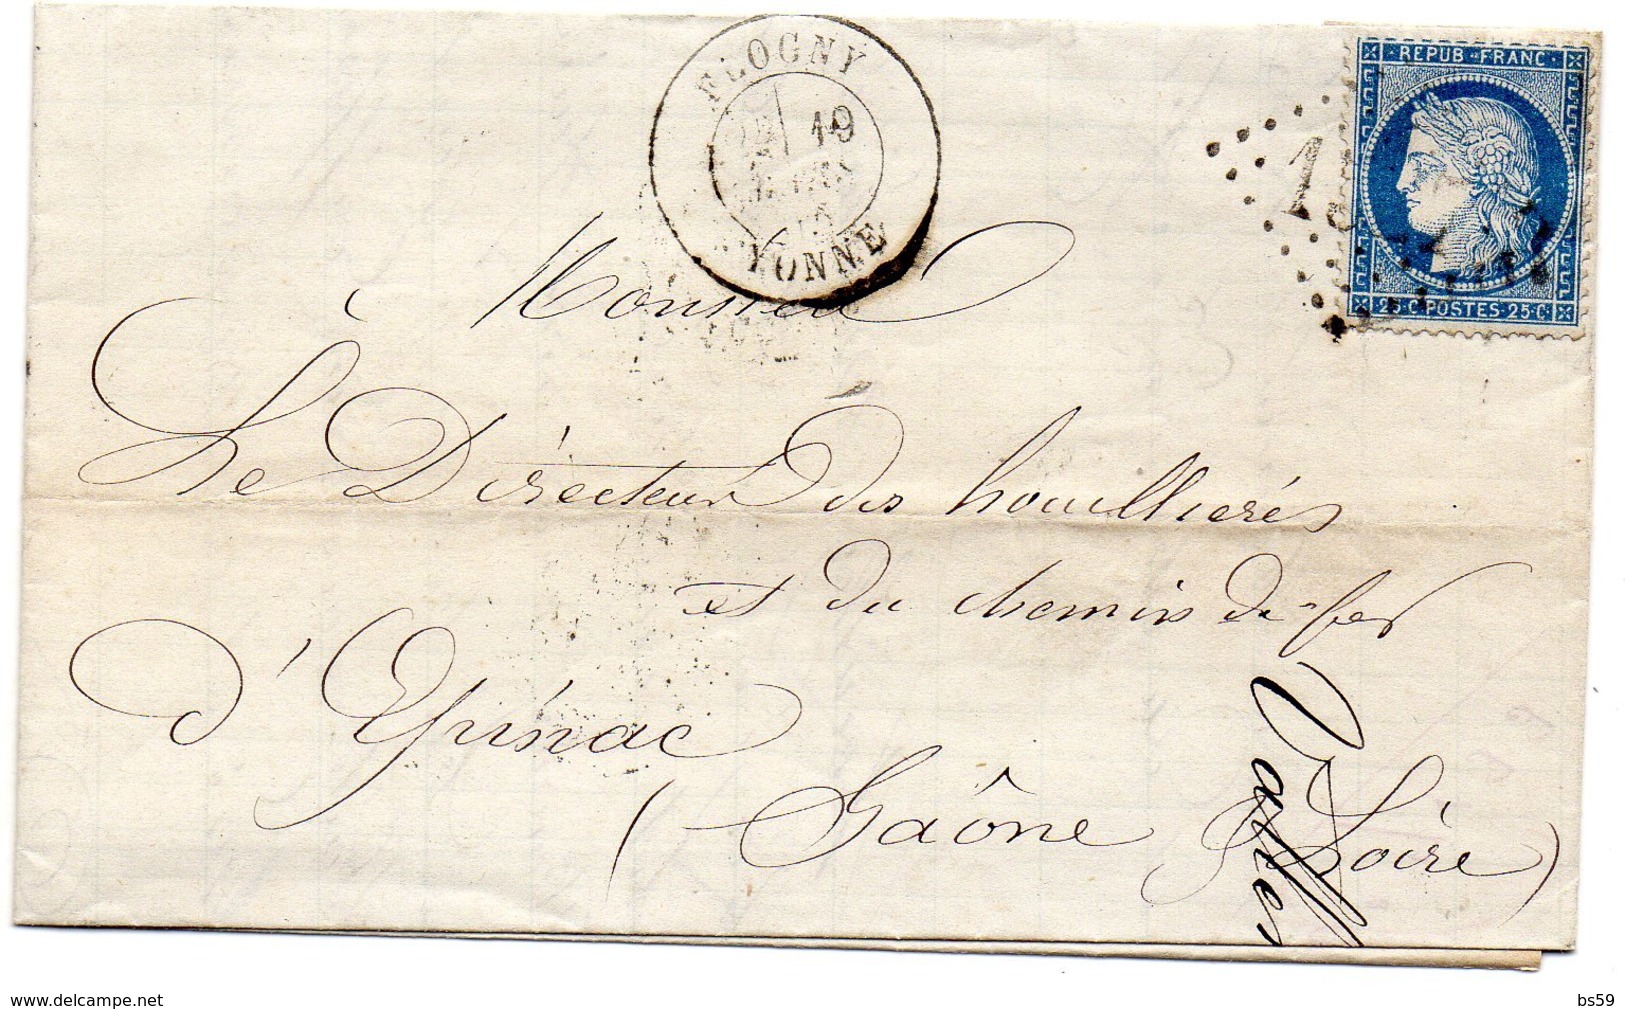 FLOGNY
19
YONNE
REPUB·FRANC·
25·C·POSTES·25·C
Monsieur
Le Directeur des houillierés
et du chemin de fer
d'Epinac
(Saône & Loire)
delcampe.net
bs59